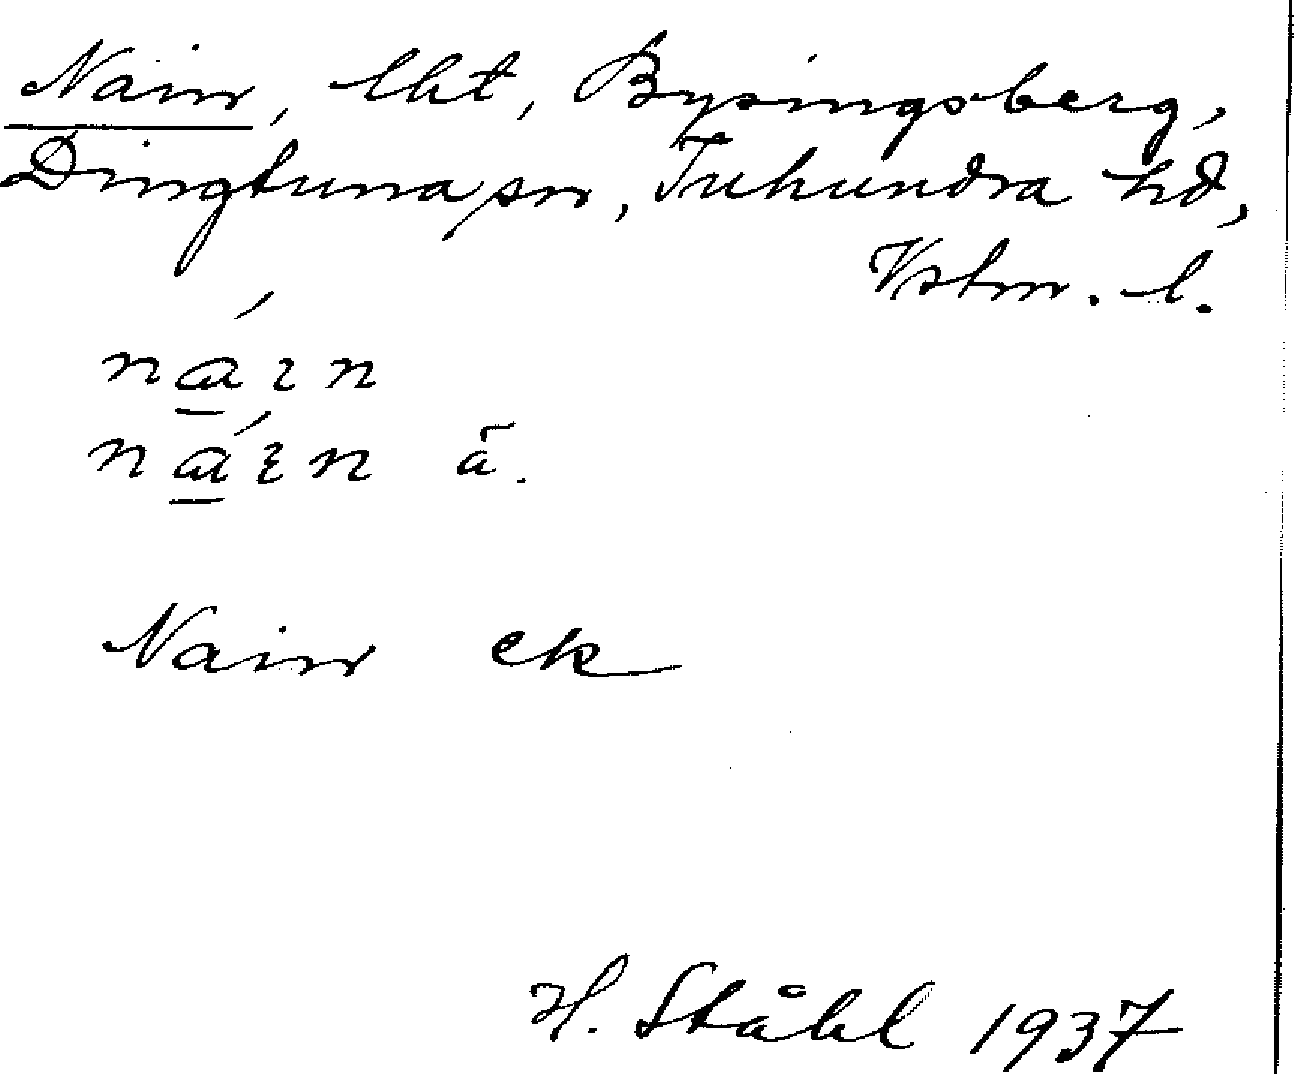 Nain, lht, Bysingsberg,
Dingtuna sn, Tuhundra hd,
Vstm. l.
Nain ek
H. Ståhl 1937